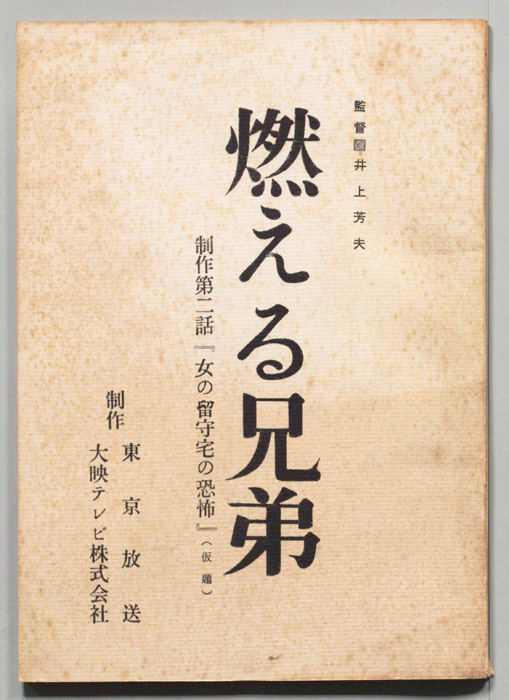 監督 井上芳夫
燃える兄弟
制作第二話『女の留守宅の恐怖』(仮題)
制作 東京放送
大映テレビ株式会社